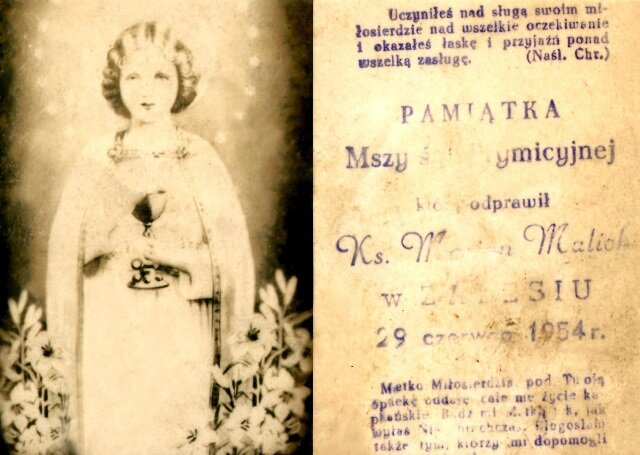 Uczyniłeś nad sługą swoim mi-
łosierdzie nad wszelkie oczekiwanie
i okazałeś łaskę i przyjaźń ponad
wszelką zasługę. (Naśl. Chr.)
PAMIĄTKA
Mszy ymicyjnej
odprawił
Ks. Malick
w
29 czerwca 1954 r.
Matko Miłosierdzia pod Twoją
opiekę oddaję całe me życie ka-
płańskie. Bądź mi Matką jak
byłaś
także tym, którzy mi dopomogli